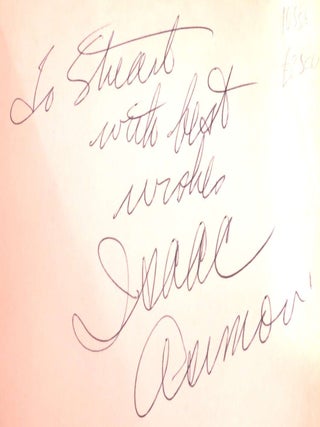 To Stuart
with best
wishes
Isaac
Asimov